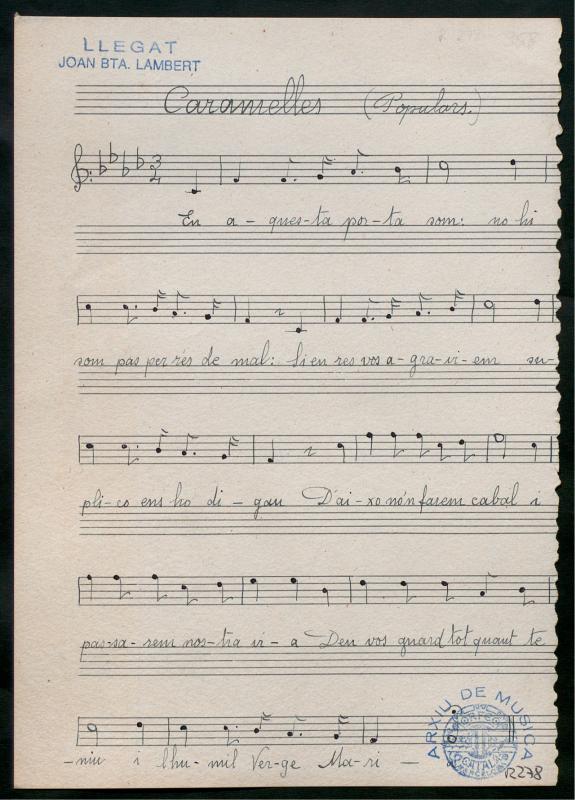 LLEGAT
JOAN BTA. LAMBERT
Caramelles (Populars.)
3
4
En a-ques-ta por-ta som: no hi
som pas per rés de mal: Si en res vos a-gra-vi-em su-
pli-co ens ho di-gau D'ai-xo nó'n farem cabal i
pas-sa-rem nos-tra vi-a Deu vos guard tot quant te
-niu i lhu-mil Ver-ge Ma-ri -
ARXIU DE MUSICA
ORFEO CATALA
R278